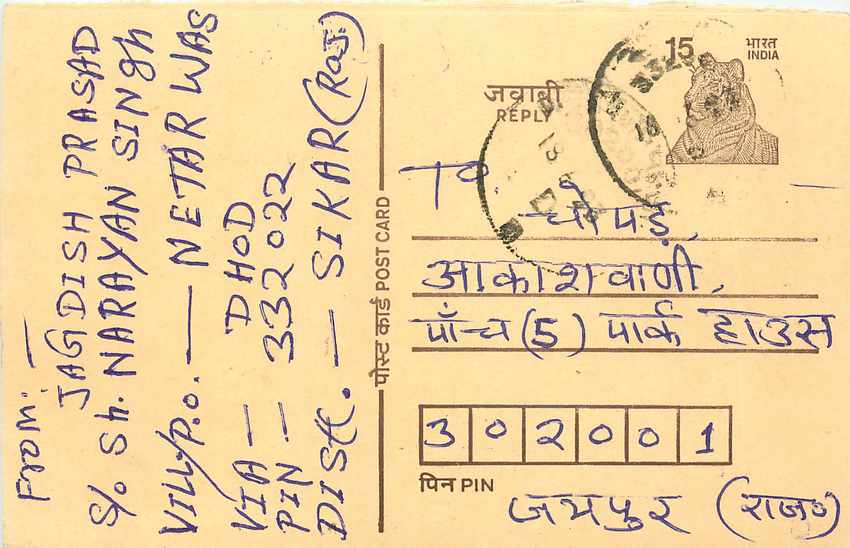 From:—
JAGDISH PRASAD
S/o Sh. NARAYAN SINGH
VILL/P.O. — NETARWAS
VIA — DHOD
PIN — 332022
DISTT. — SIKAR (RAJ.)
पोस्ट कार्ड POST CARD
15
भारत
INDIA
जवाबी
REPLY
To
चौपड़,
आकाशवाणी,
पाँच (5) पार्क हाउस
302001
पिन PIN
जयपुर (राज०)